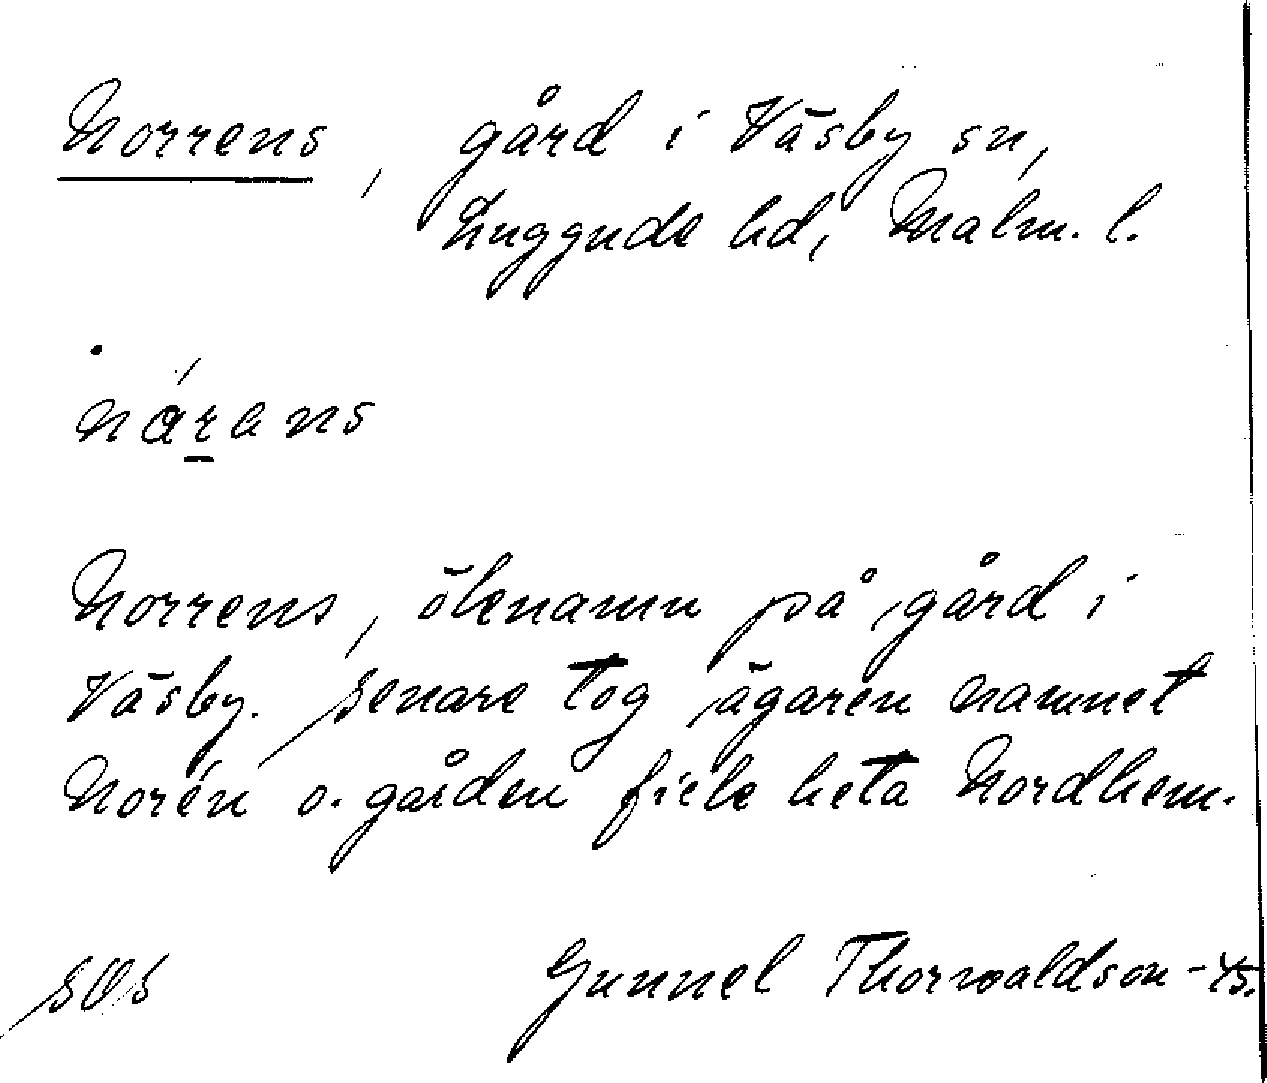 Norrens, gård i Väsby sn,
Luggude hd, Malm. l.
nárans
Norrens, öknamn på gård i
Väsby. Senare tog ägaren namnet
Norén o. gården fick heta Nordhem.
SOS Gunnel Thorwaldson -45.